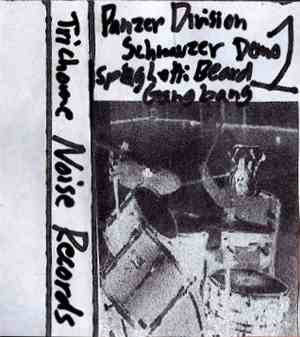 Trichome Noise Records
Panzer Division
Schmurzer Demo 1
Spaghetti Beard
Gangbang